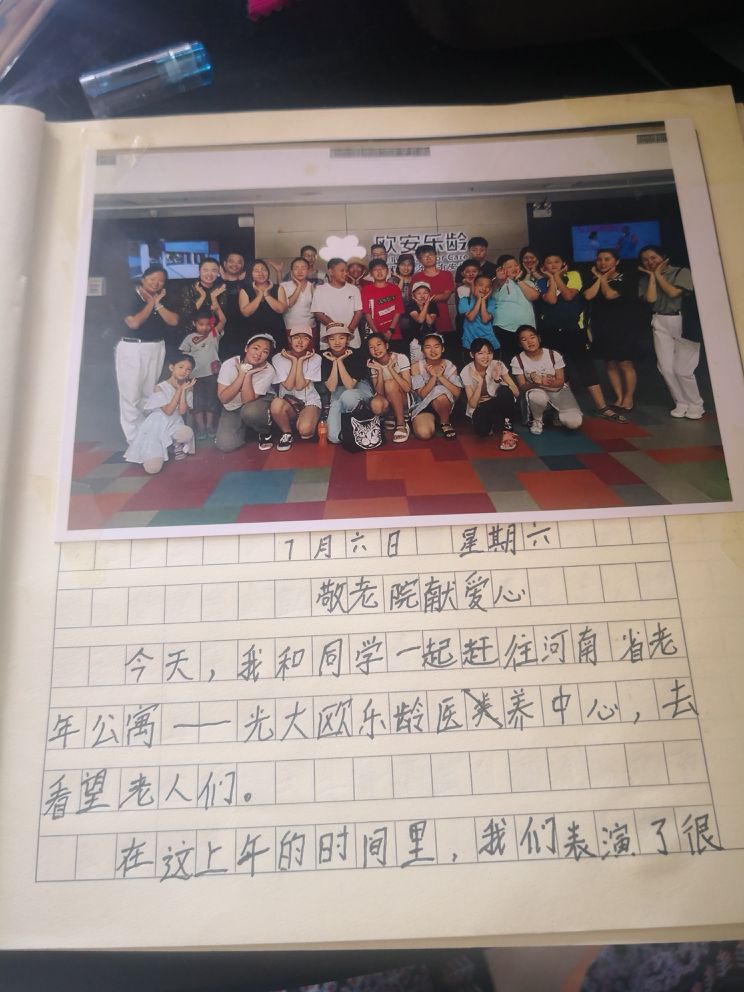 欧安乐龄
7月六日 星期六
敬老院献爱心
今天，我和同学一起赶往河南省老
年公寓——光大欧乐龄医养中心，去
看望老人们。
在这上午的时间里，我们表演了很